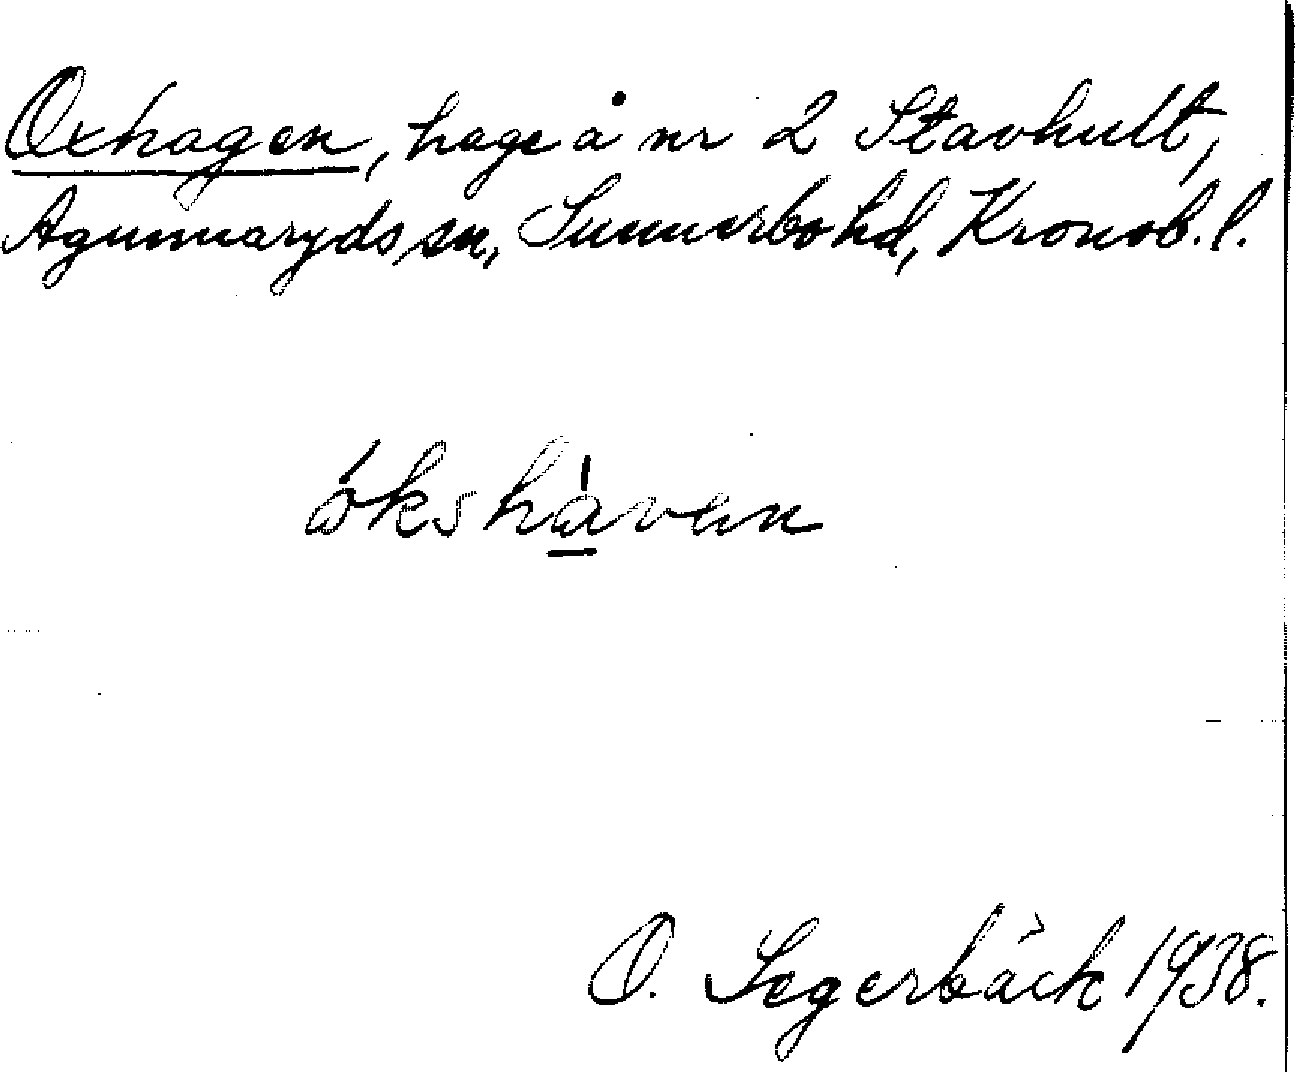 Oxhagen, hage å nr 2 Stavhult,
Agunnaryds sn, Sunnerbo hd, Kronob. l.
ókshàvan
O. Segerbäck 1938.